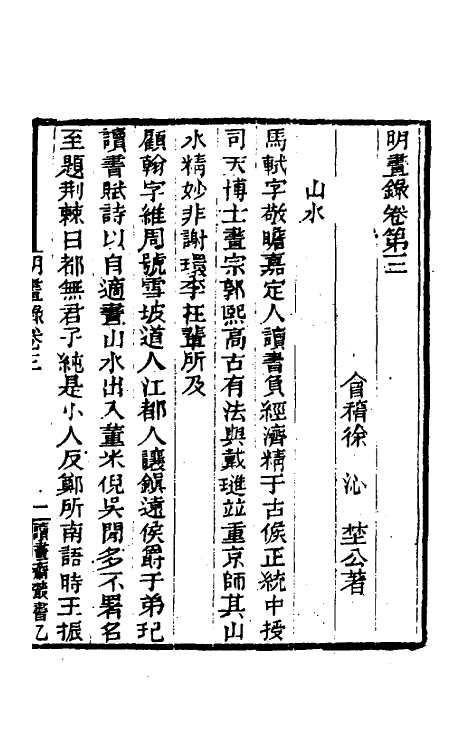 明畫錄卷第三
會稽徐 沁 埜公著
山水
馬軾字敬瞻嘉定人讀書負經濟精于占候正統中授
司天博士畫宗郭熙高古有法與戴璡竝重京師其山
水精妙非謝環李在輩所及
顧翰字維周號雪坡道人江都人讓鎮遠侯爵于弟玘
讀書賦詩以自適畫山水出入董米倪吳閒多不署名
至題荆棘曰都無君子純是小人反鄭所南語時王振
明畫錄卷三
一
讀畫齋叢書乙